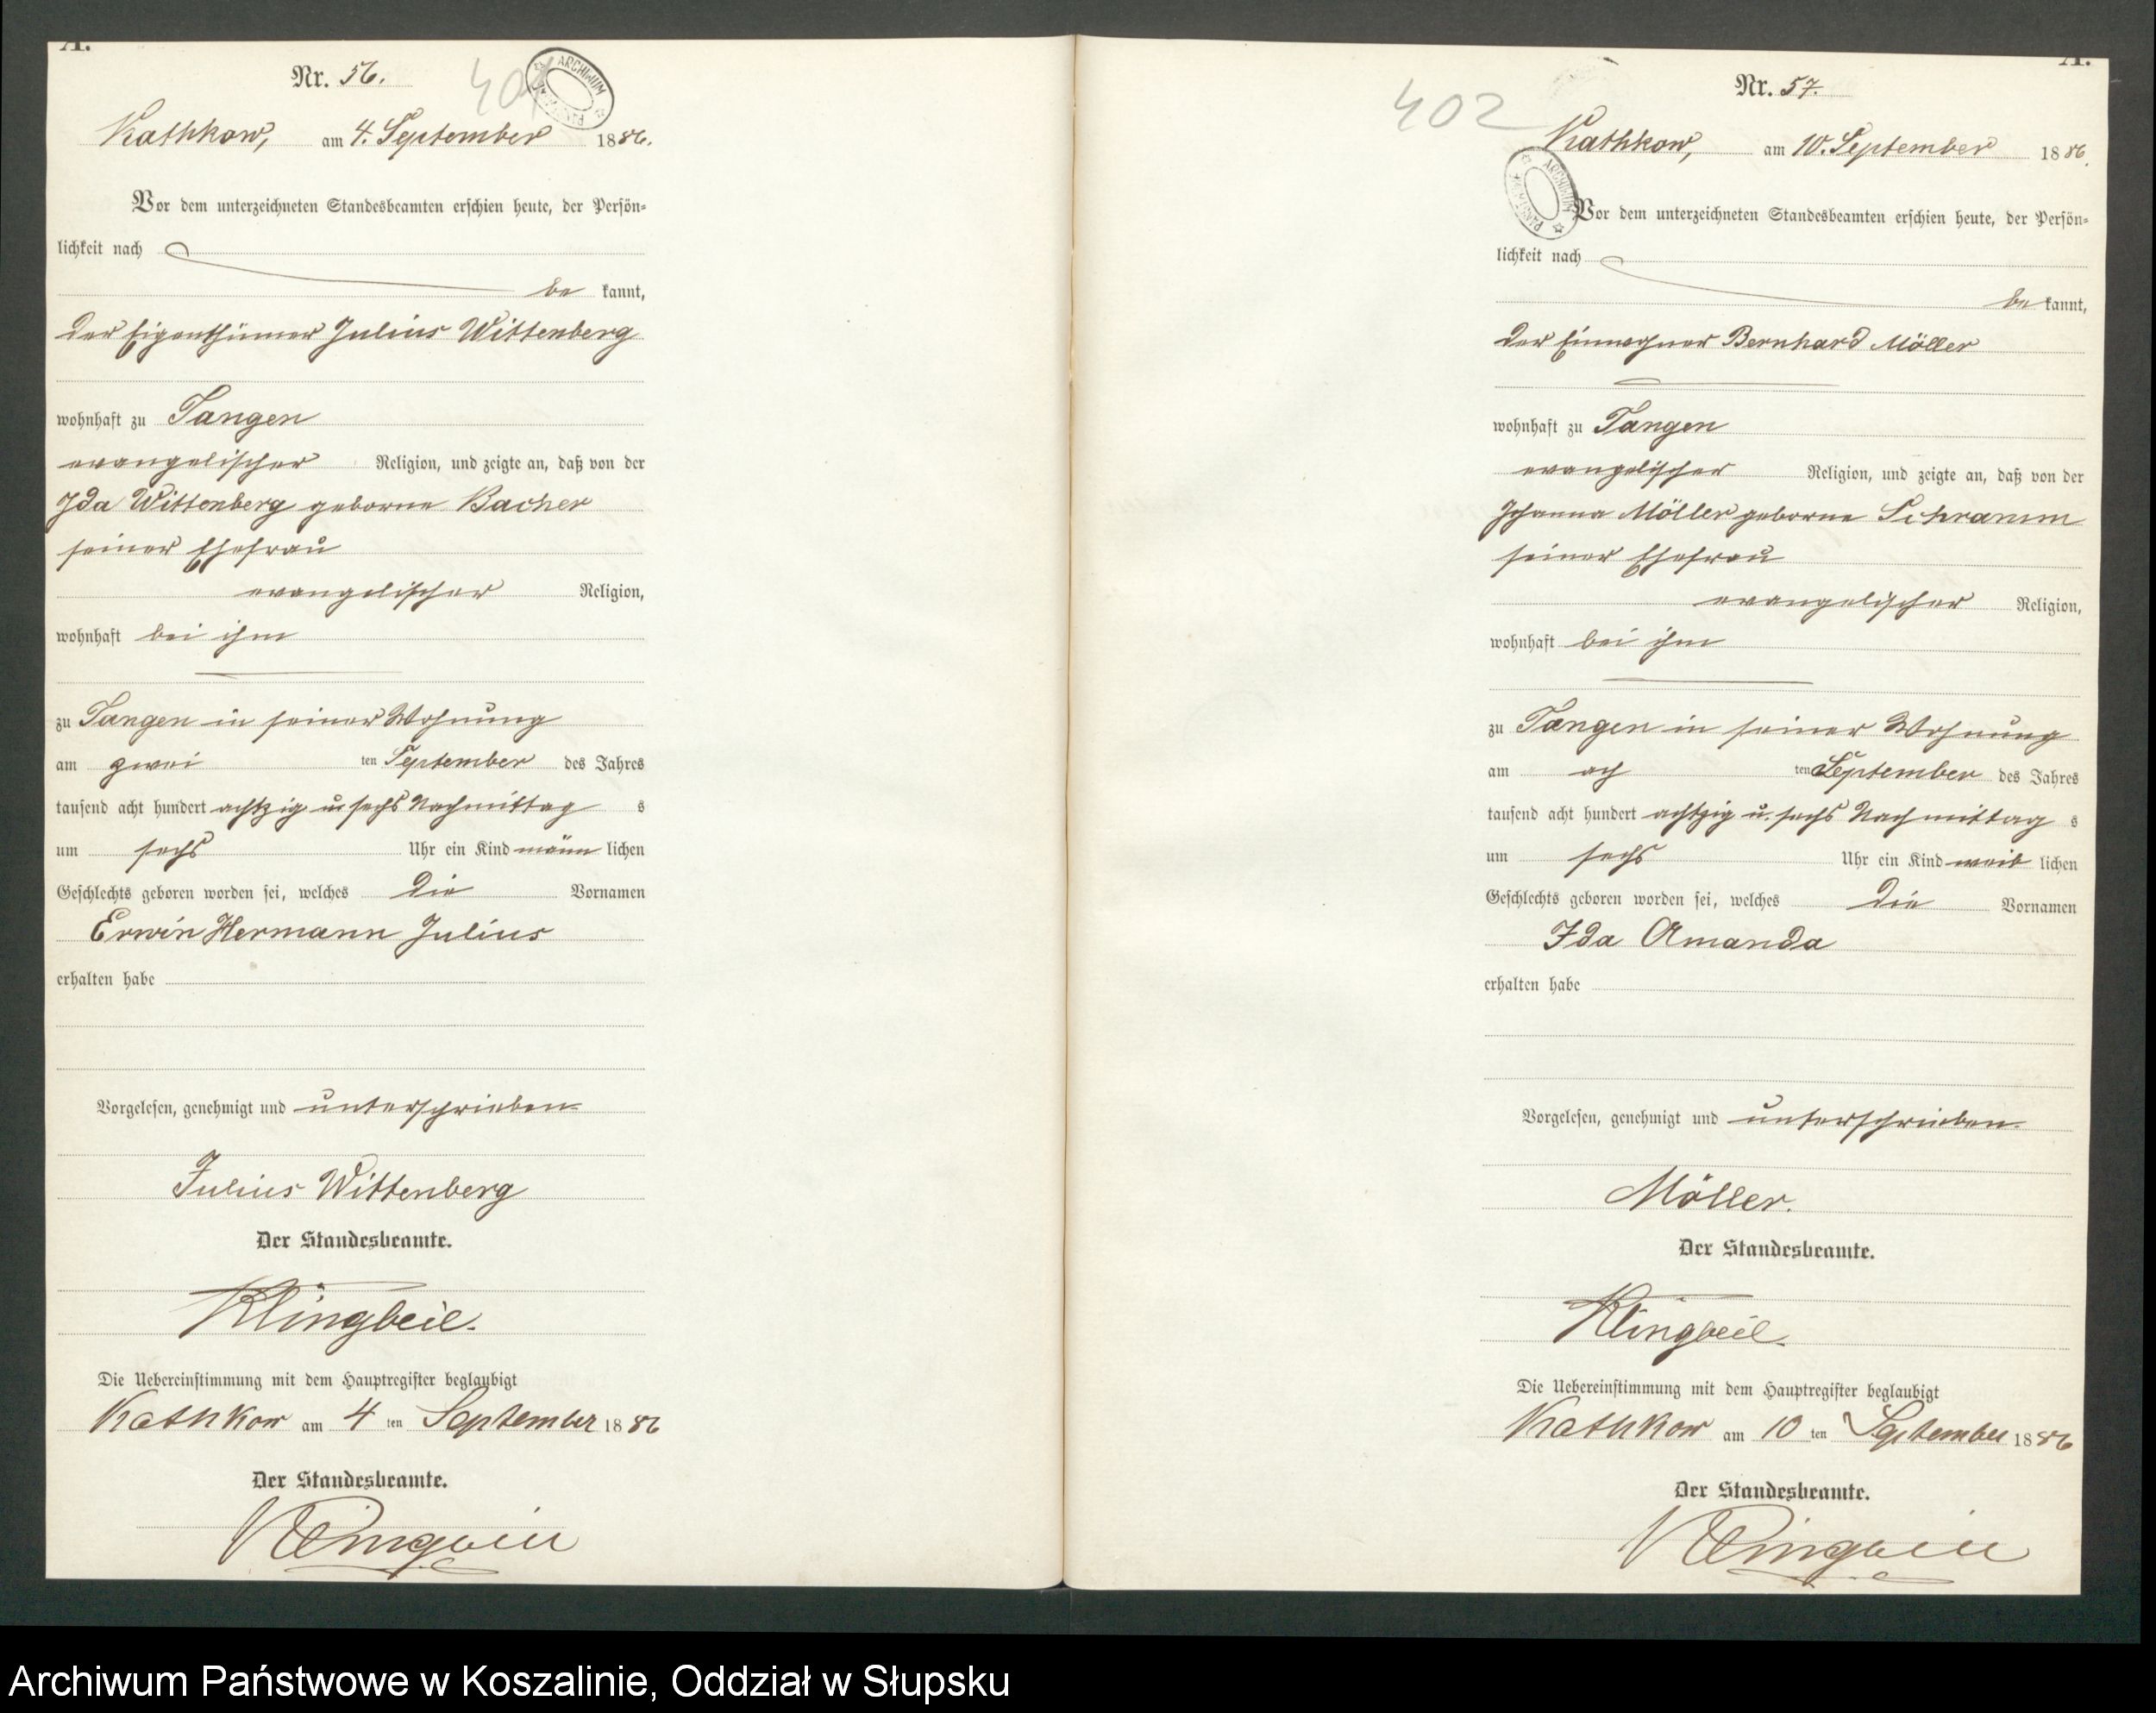 A.
Nr. 56.
401
ARCHIWUM
Kathkow, am 4. September 1886.
Vor dem unterzeichneten Standesbeamten erschien heute, der Persön-
lichkeit nach
be kannt,
der Eigenthümer Julius Wittenberg
wohnhaft zu Tangen
evangelischer Religion, und zeigte an, daß von der
Ida Wittenberg geborne Bacher
seiner Ehefrau
evangelischer Religion,
wohnhaft bei ihm
zu Tangen in seiner Wohnung
am zwei ten September des Jahres
tausend acht hundert achtzig u. sechs Nachmittag s
um sechs Uhr ein Kind männ lichen
Geschlechts geboren worden sei, welches die Vornamen
Erwin Hermann Julius
erhalten habe
Vorgelesen, genehmigt und unterschrieben
Julius Wittenberg
Der Standesbeamte.
Klingbeil.
Die Uebereinstimmung mit dem Hauptregister beglaubigt
Kathkow am 4 ten September 1886
Der Standesbeamte.
Klingbeil
A.
Nr. 57.
402
Kathkow, am 10. September 1886.
ARCHIWUM
Vor dem unterzeichneten Standesbeamten erschien heute, der Persön-
lichkeit nach
be kannt,
der Einwohner Bernhard Möller
wohnhaft zu Tangen
evangelischer Religion, und zeigte an, daß von der
Johanna Möller geborne Schramm
seiner Ehefrau
evangelischer Religion,
wohnhaft bei ihm
zu Tangen in seiner Wohnung
am ach ten September des Jahres
tausend acht hundert achtzig u. sechs Nachmittag s
um sechs Uhr ein Kind weib lichen
Geschlechts geboren worden sei, welches die Vornamen
Ida Amanda
erhalten habe
Vorgelesen, genehmigt und unterschrieben
Möller.
Der Standesbeamte.
Klingbeil.
Die Uebereinstimmung mit dem Hauptregister beglaubigt
Kathkow am 10 ten September 1886
Der Standesbeamte.
Klingbeil
Archiwum Państwowe w Koszalinie, Oddział w Słupsku